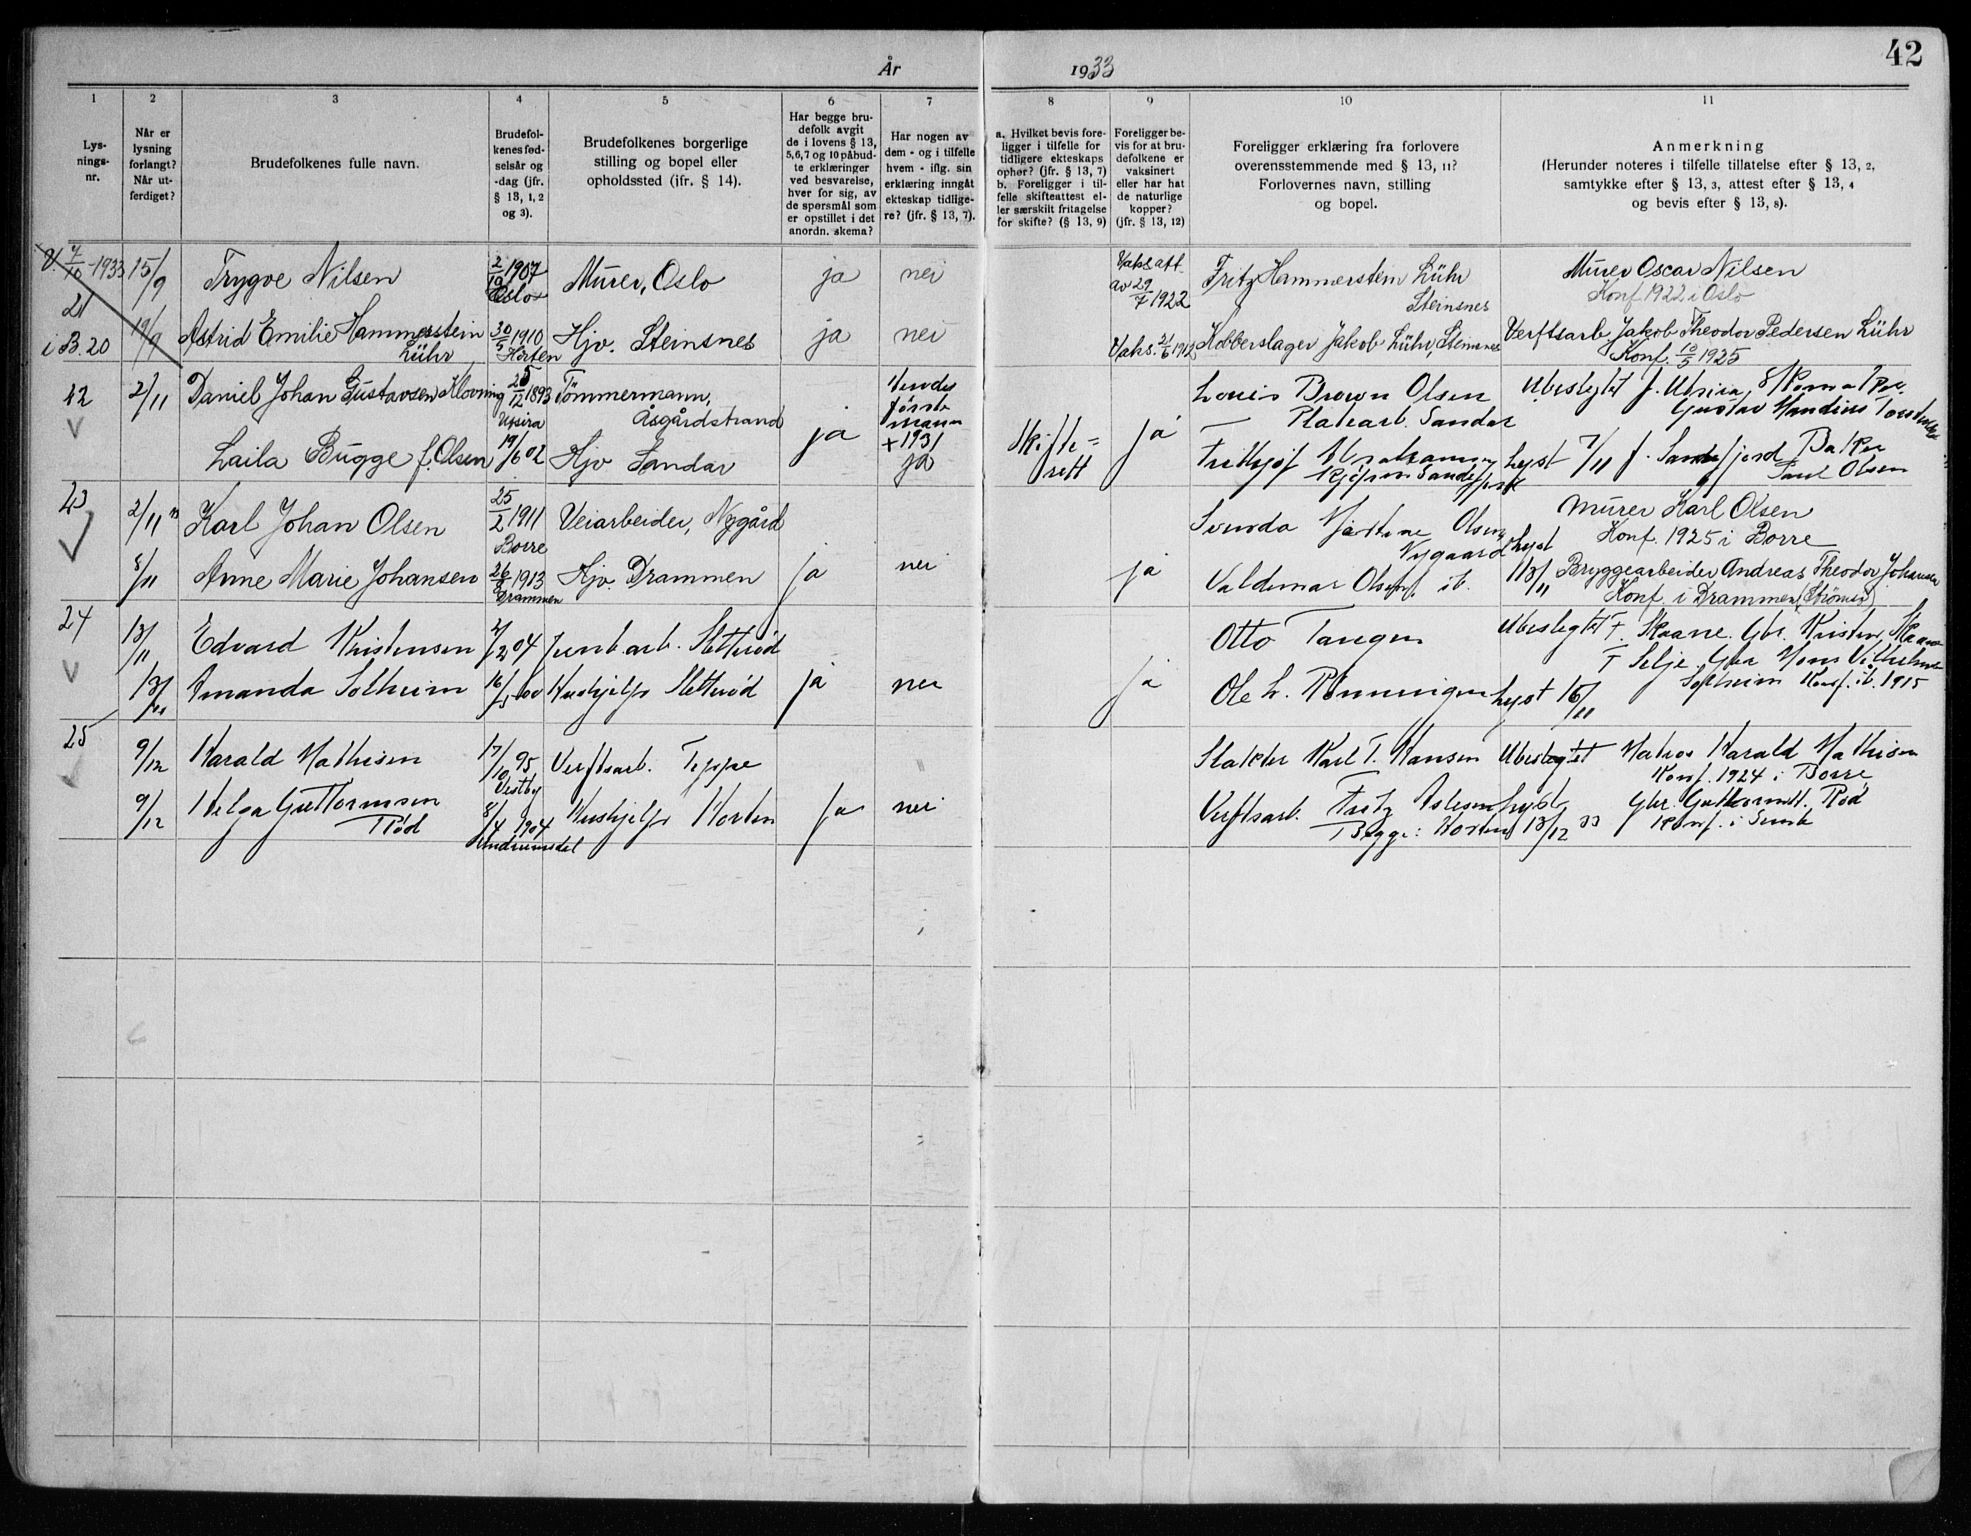 År 1933
42
1
2
3
4
5
6
7
8
9
10
11
Lys-
nings-
nr.
Når er
lysning
forlangt?
Når ut-
ferdiget?
Brudefolkenes fulle navn.
Brudefol-
kenes fød-
selsår og
-dag (jfr.
§ 13, 1, 2
og 3).
Brudefolkenes borgerlige
stilling og bopel eller
opholdssted (ifr. § 14).
Har begge bru-
defolk avgit
de i lovens § 13,
5,6,7 og 10 påbud-
te erklæringer
ved besvarelse,
hver for sig, av
de spørsmål som
er opstillet i det
anordn. skema?
Har nogen av
dem - og i tilfelle
hvem - iflg. sin
erklæring inngått
ekteskap tidlige-
re? (jfr. § 13, 7).
a. Hvilket bevis fore-
ligger i tilfelle for
tidligere ekteskaps
ophør? (jfr. § 13, 7)
b. Foreligger i til-
felle skifteattest el-
ler særskilt fritagelse
for skifte? (§ 13, 9)
Foreligger be-
vis for at bru-
defolkene er
vaksinert
eller har hat
de naturlige
kopper?
(jfr. § 13, 12)
Foreligger erklæring fra forlovere
overensstemmende med § 13, 11?
Forlovernes navn, stilling
og bopel.
Anmerkning
(Herunder noteres i tilfelle tillatelse efter § 13, 2,
samtykke efter § 13, 3, attest efter § 13, 4
og bevis efter § 13, 8).
V. 7/10 1933
21
i B. 20
15/9
Trygve Nilsen
2/10 1907
Oslo
Murer, Oslo
ja
nei
Vaks att.
av 29/7 1922
Fritz Hammerstein Lühr
Steinsnes
Murer Oscar Nilsen
Konf. 1922 i Oslo
19/9
Astrid Emilie Hammerstein
Lühr
30/5 1910
Horten
Hjv. Steinsnes
ja
nei
Vaks. 21/6 1912
Kobberslager Jakob Lühr, Steinsnes
Verftsarb. Jakob Theodor Pedersen Lühr
Konf. 10/5 1925
22
2/11
Daniel Johan Gustavsen Klovning
25/12 1893
Utsira
Tömmermann,
Åsgårdstrand
ja
Hendes
første
mann
+ 1931
ja
Skifte-
rett
ja
Louis Brown Olsen
Platearb. Sandar
Ubeslegtet f. Utsira,
Gustav Mandius
Laila Bugge f. Olsen
19/6 02
Hjv Sandar
Lyst 7/11 f. Sandefjord
Olsen
23
2/11
Karl Johan Olsen
25/2 1911
Borre
Veiarbeider, Nygård
Olsen,
Nygaard
Lyst
Murer Karl Olsen
Konf. 1925 i Borre
8/11
Anne Marie Johansen
1913
Drammen
Hjv. Drammen
ja
nei
ja
Valdemar Olsen, ib.
13/11
Bryggearbeider Andreas Theodor Johansen
Konf. i Drammen (Strömsø)
24
13/11
Edvard Kristensen
04
Jernb.arb. Sletterød
Otto Tangen
Ubeslegtet F. Skaane. Gbr. Kristen
13/11
Amanda Solheim
16/5 00
Hushjelp Sletterød
ja
nei
ja
Ole L. Rønningen
Lyst 16/11
F Selje. Gbr Mons Vilhelm
Solheim Konf. ib. 1915
25
9/12
Harald Mathisen
17/10 95
Vestby
Verftsarb. Teppe
Slakter Karl T. Hansen
Ubeslegtet
Matros Harald Mathisen
Konf. 1924 i Borre
9/12
Helga Guttormsen
Rød
8/4 1904
Hushjelp Horten
ja
nei
Verftsarb. Fritz Aslesen
Begge: Horten
Lyst
13/12 33
Gbr. Guttorm Rød
Konf. i